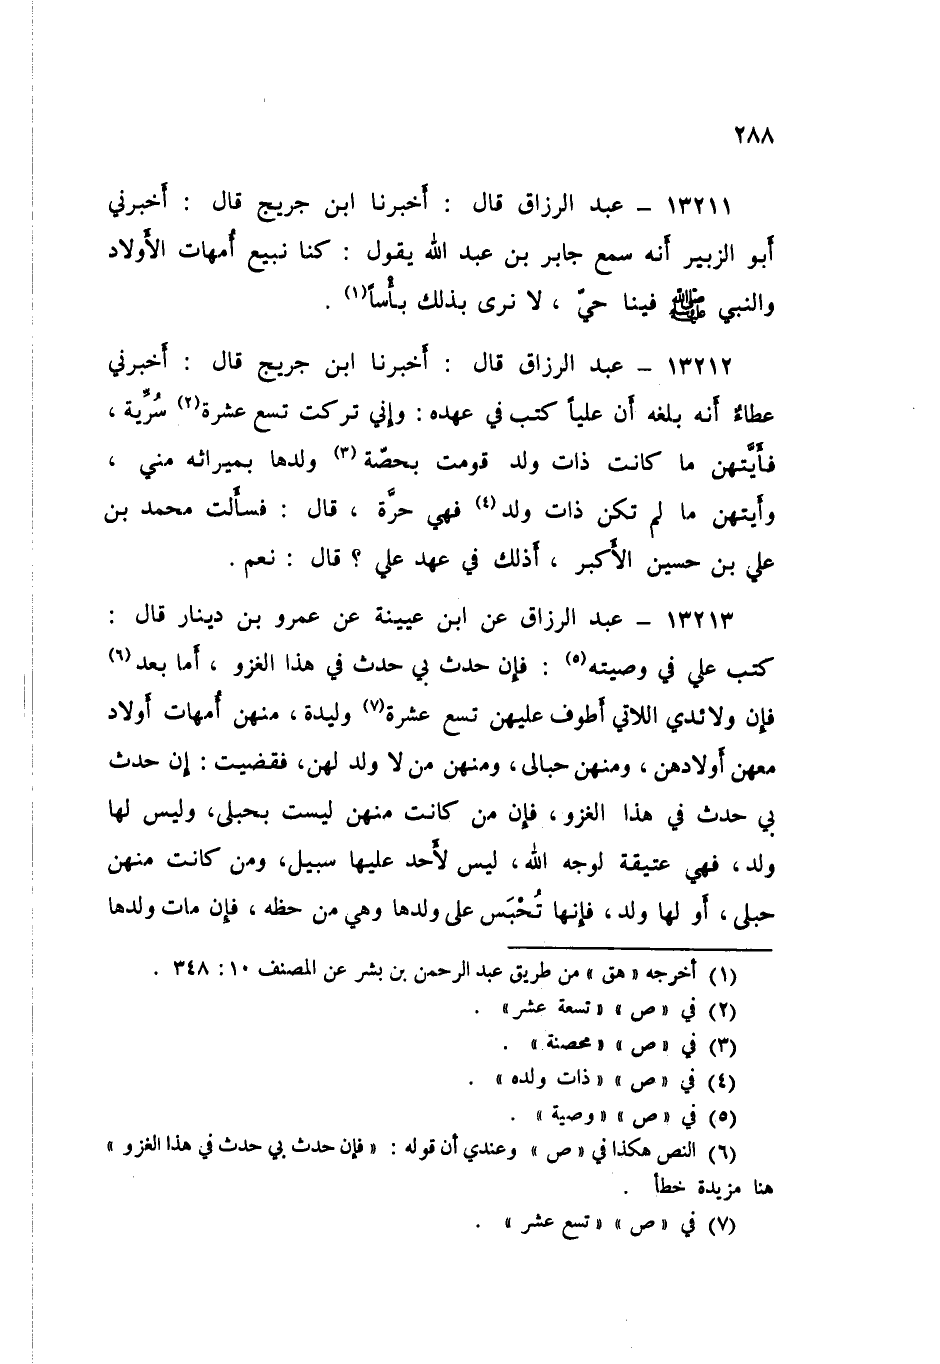 ٢٨٨
١٣٢١١ ــ عبد الرزاق قال : أخبرنا ابن جريج قال : أخبرني
أبو الزبير أنه سمع جابر بن عبد الله يقول : كنا نبيع أُمهات الأولاد
والنبي ﷺ فينا حيّ ، لا نرى بذلك بأْساً(١) .
١٣٢١٢ ــ عبد الرزاق قال : أخبرنا ابن جريج قال : أخبرني
عطاءٌ أنه بلغه أن علياً كتب في عهده : وإني تركت تسع عشرة(٢) سُرِّية ،
فأَيَّتهن ما كانت ذات ولد قومت بحصّة(٣) ولدها بميراثه مني ،
وأيتهن ما لم تكن ذات ولد(٤) فهي حرَّة ، قال : فسألت محمد بن
علي بن حسين الأكبر ، أذلك في عهد علي ؟ قال : نعم .
١٣٢١٣ ــ عبد الرزاق عن ابن عيينة عن عمرو بن دينار قال :
كتب علي في وصيته(٥) : فإن حدث بي حدث في هذا الغزو ، أما بعد(٦)
فإن ولائدي اللاتي أطوف عليهن تسع عشرة(٧) وليدة ، منهن أُمهات أولاد
معهن أولادهن ، ومنهن حبالى ، ومنهن من لا ولد لهن، فقضيت : إن حدث
بي حدث في هذا الغزو ، فإن من كانت منهن ليست بحبلى، وليس لها
ولد ، فهي عتيقة لوجه الله ، ليس لأحد عليها سبيل، ومن كانت منهن
حبلى ، أو لها ولد ، فإنها تُحْبَس على ولدها وهي من حظه ، فإن مات ولدها
(١) أخرجه « هق » من طريق عبد الرحمن بن بشر عن المصنف ١٠ : ٣٤٨ .
(٢) في « ص » « تسعة عشر » .
(٣) في « ص » « محصنة » .
(٤) في « ص » « ذات ولده » .
(٥) في « ص » « وصية » .
(٦) النص هكذا في « ص » وعندي أن قوله : « فإن حدث بي حدث في هذا الغزو »
هنا مزيدة خطأ .
(٧) في « ص » « تسع عشر » .